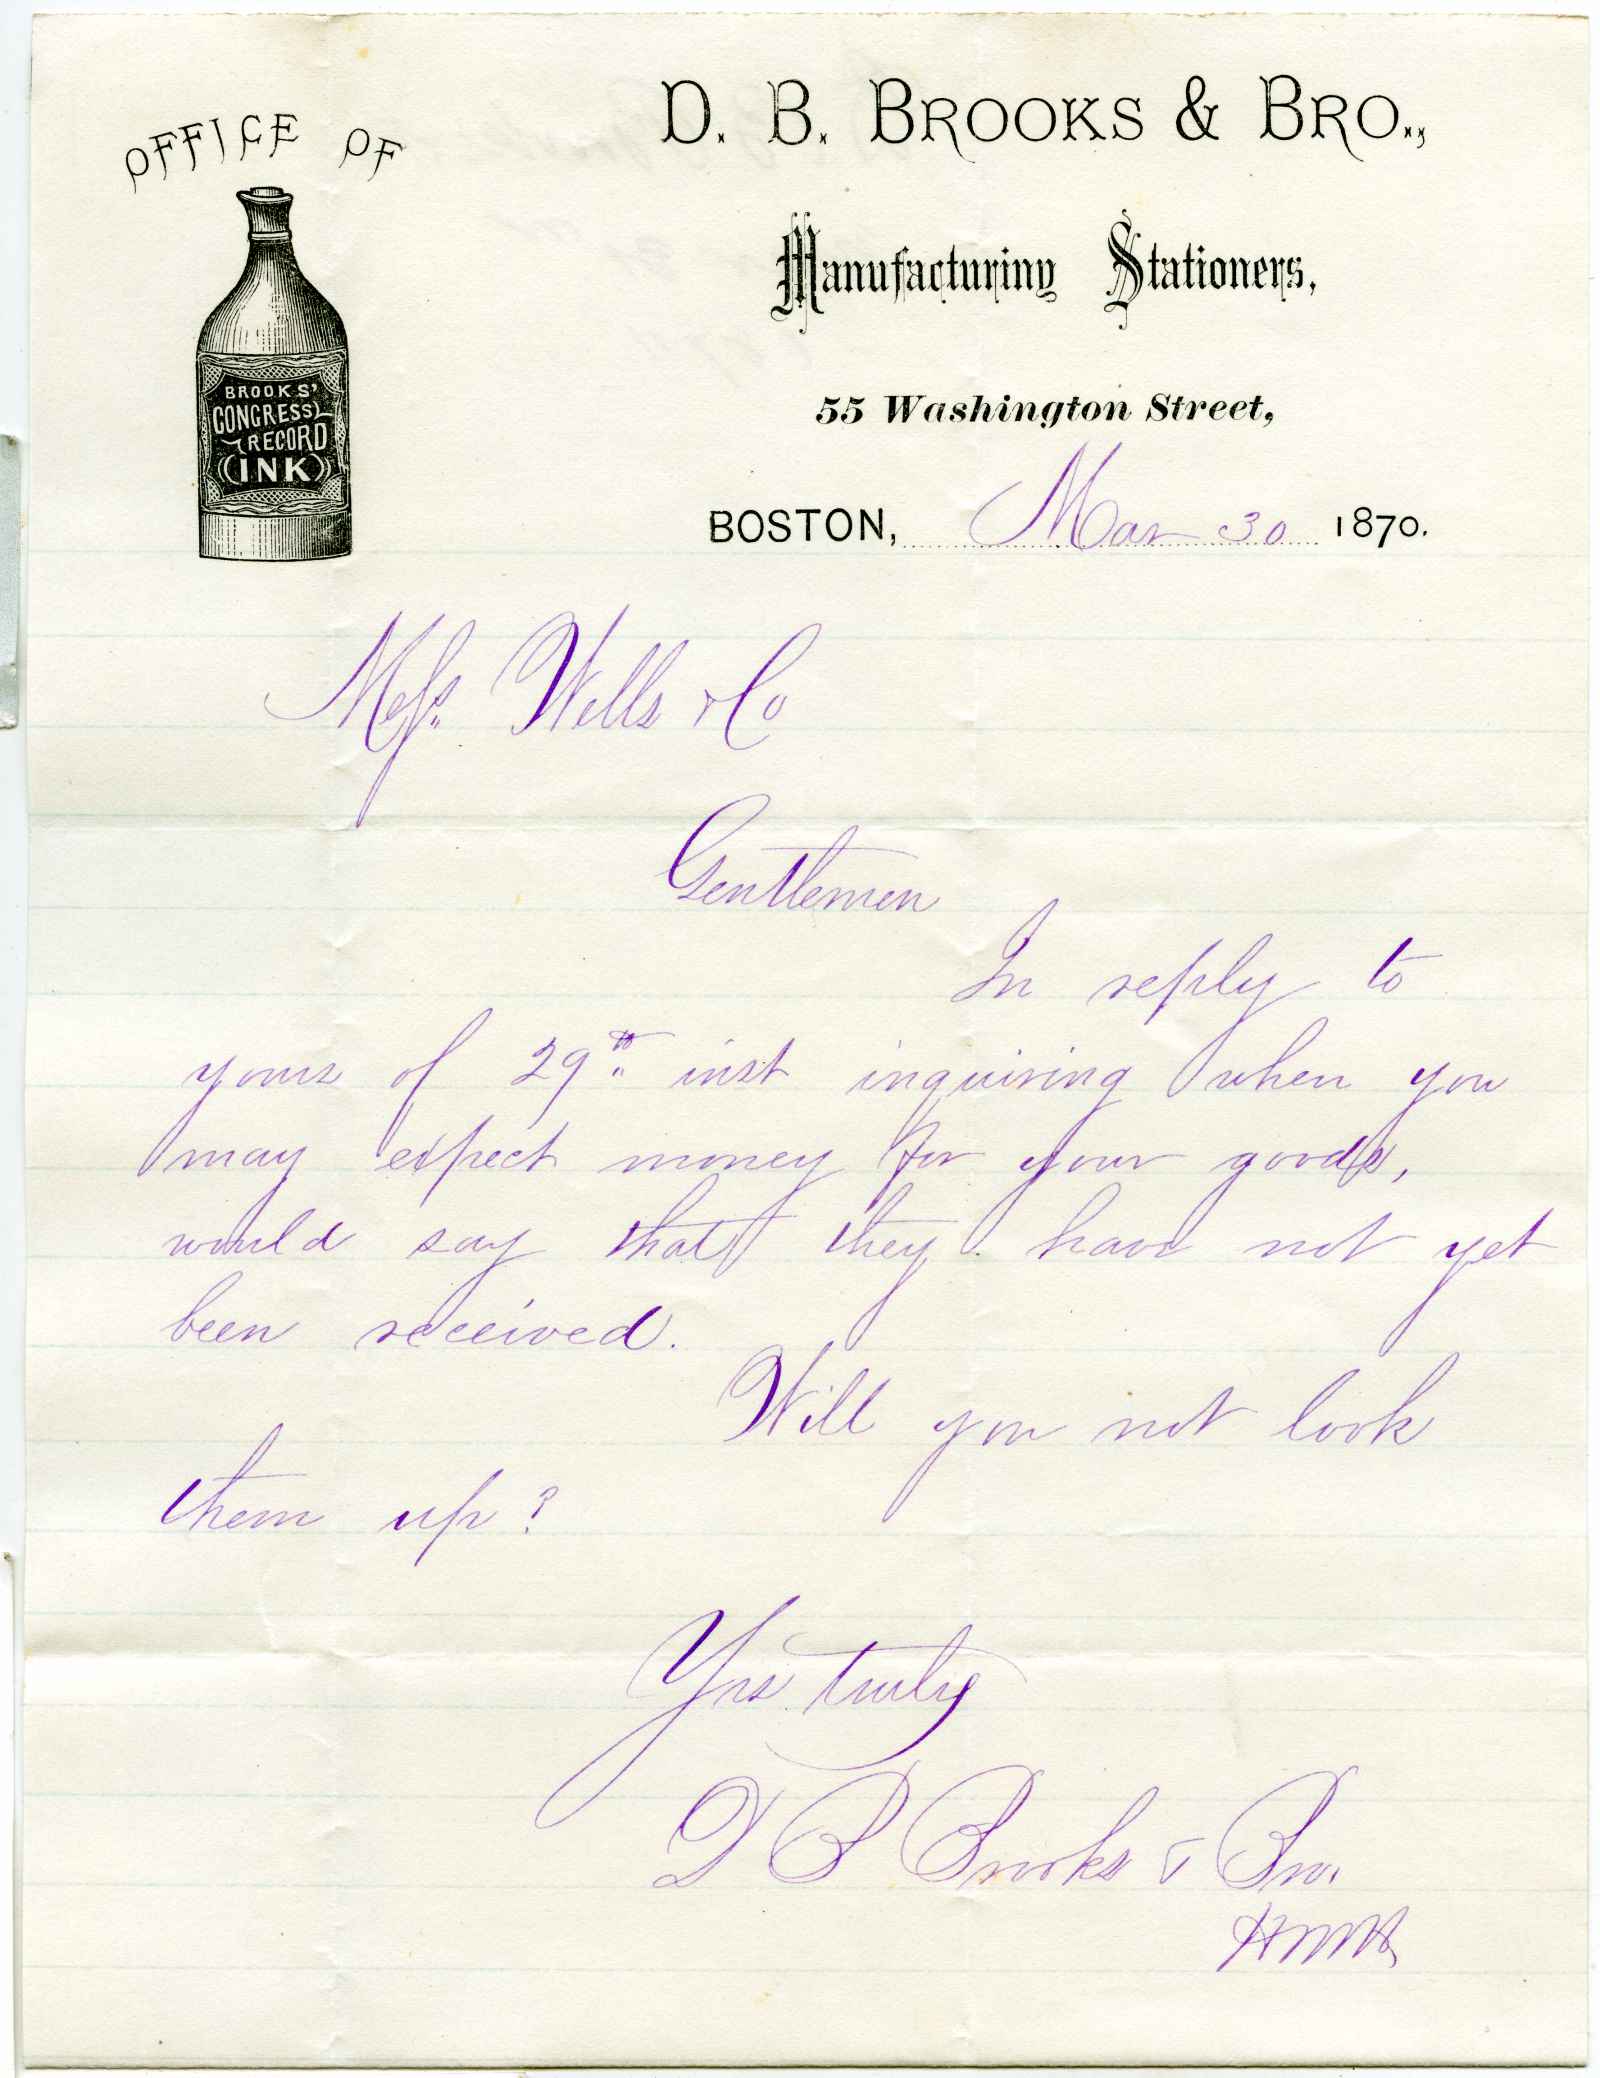 OFFICE OF
D. B. BROOKS & BRO.,
Manufacturing Stationers,
55 Washington Street,
BROOKS'
CONGRESS
RECORD
INK
BOSTON, Mar 30 1870.
Mess. Wells & Co
Gentlemen
In reply to
yours of 29th inst inquiring when you
may expect money for your goods,
would say that they have not yet
been received.
Will you not look
them up?
Yrs truly
D B Brooks & Bro.